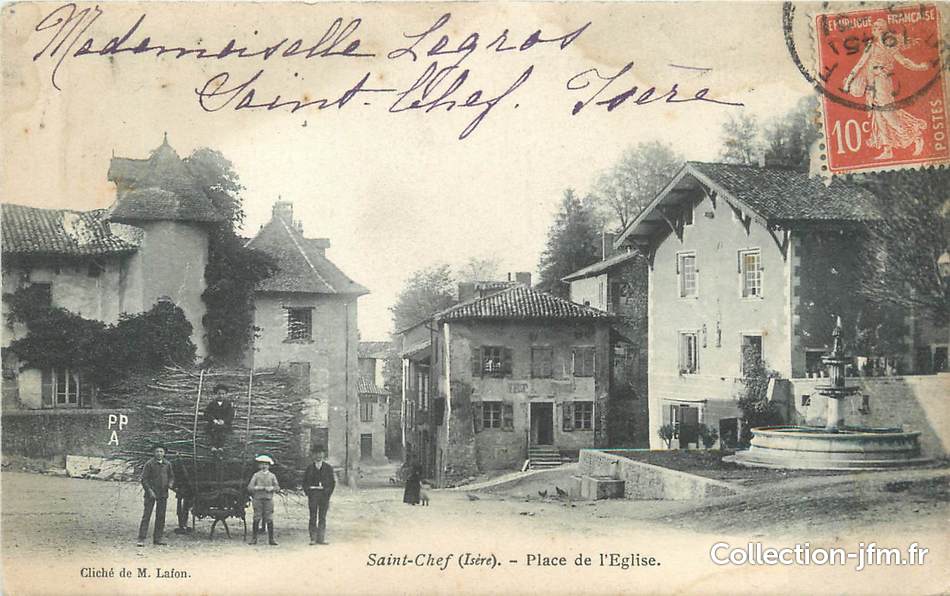 Mademoiselle Legros
Saint-Chef. Isère
REPUBLIQUE FRANÇAISE
10c
POSTES
PP
A
Saint-Chef (Isère). - Place de l'Eglise.
Cliché de M. Lafon.
www.Collection-jfm.fr